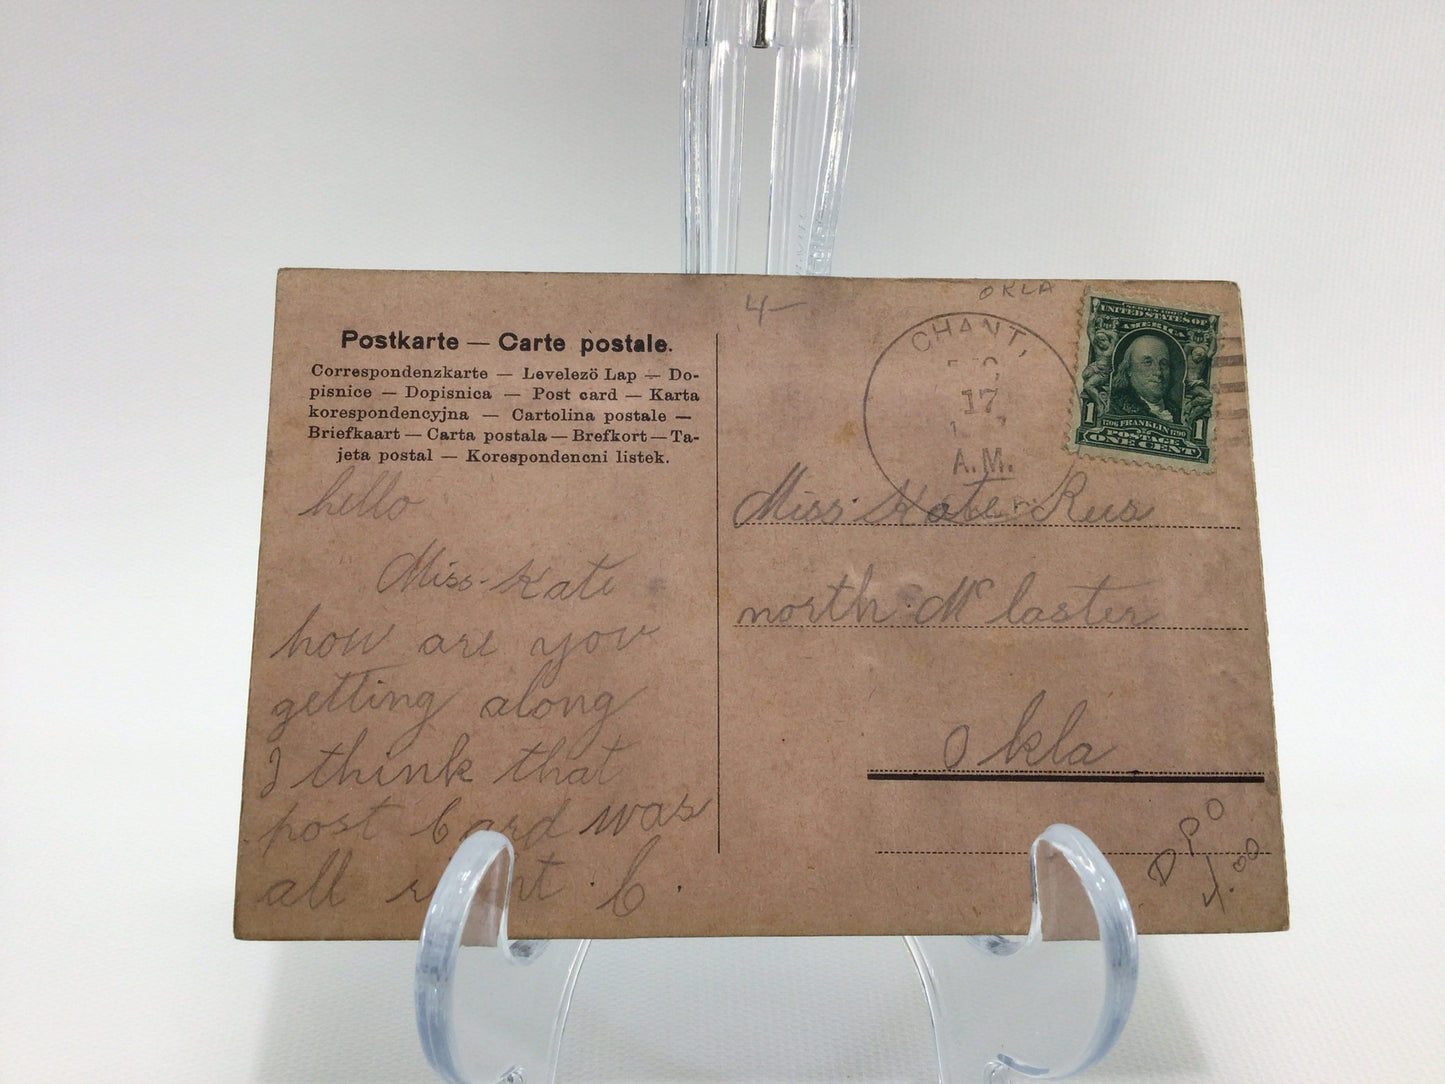 Postkarte — Carte postale.
Correspondenzkarte — Levelezö Lap — Do-
pisnice — Dopisnica — Post card — Karta
korespondencyjna — Cartolina postale —
Briefkaart — Carta postala — Brefkort — Ta-
jeta postal — Korespondencni listek.
hello
Miss. Kate
how are you
getting along
I think that
post Card was
all . C.
4—
OKLA
CHANT,
17
A.M.
SERIES 1902
UNITED STATES OF
AMERICA
1 1
1706 FRANKLIN 1790
POSTAGE
ONE CENT
Miss. Kate Rus
north Mc laster
Okla
DPO
4.00